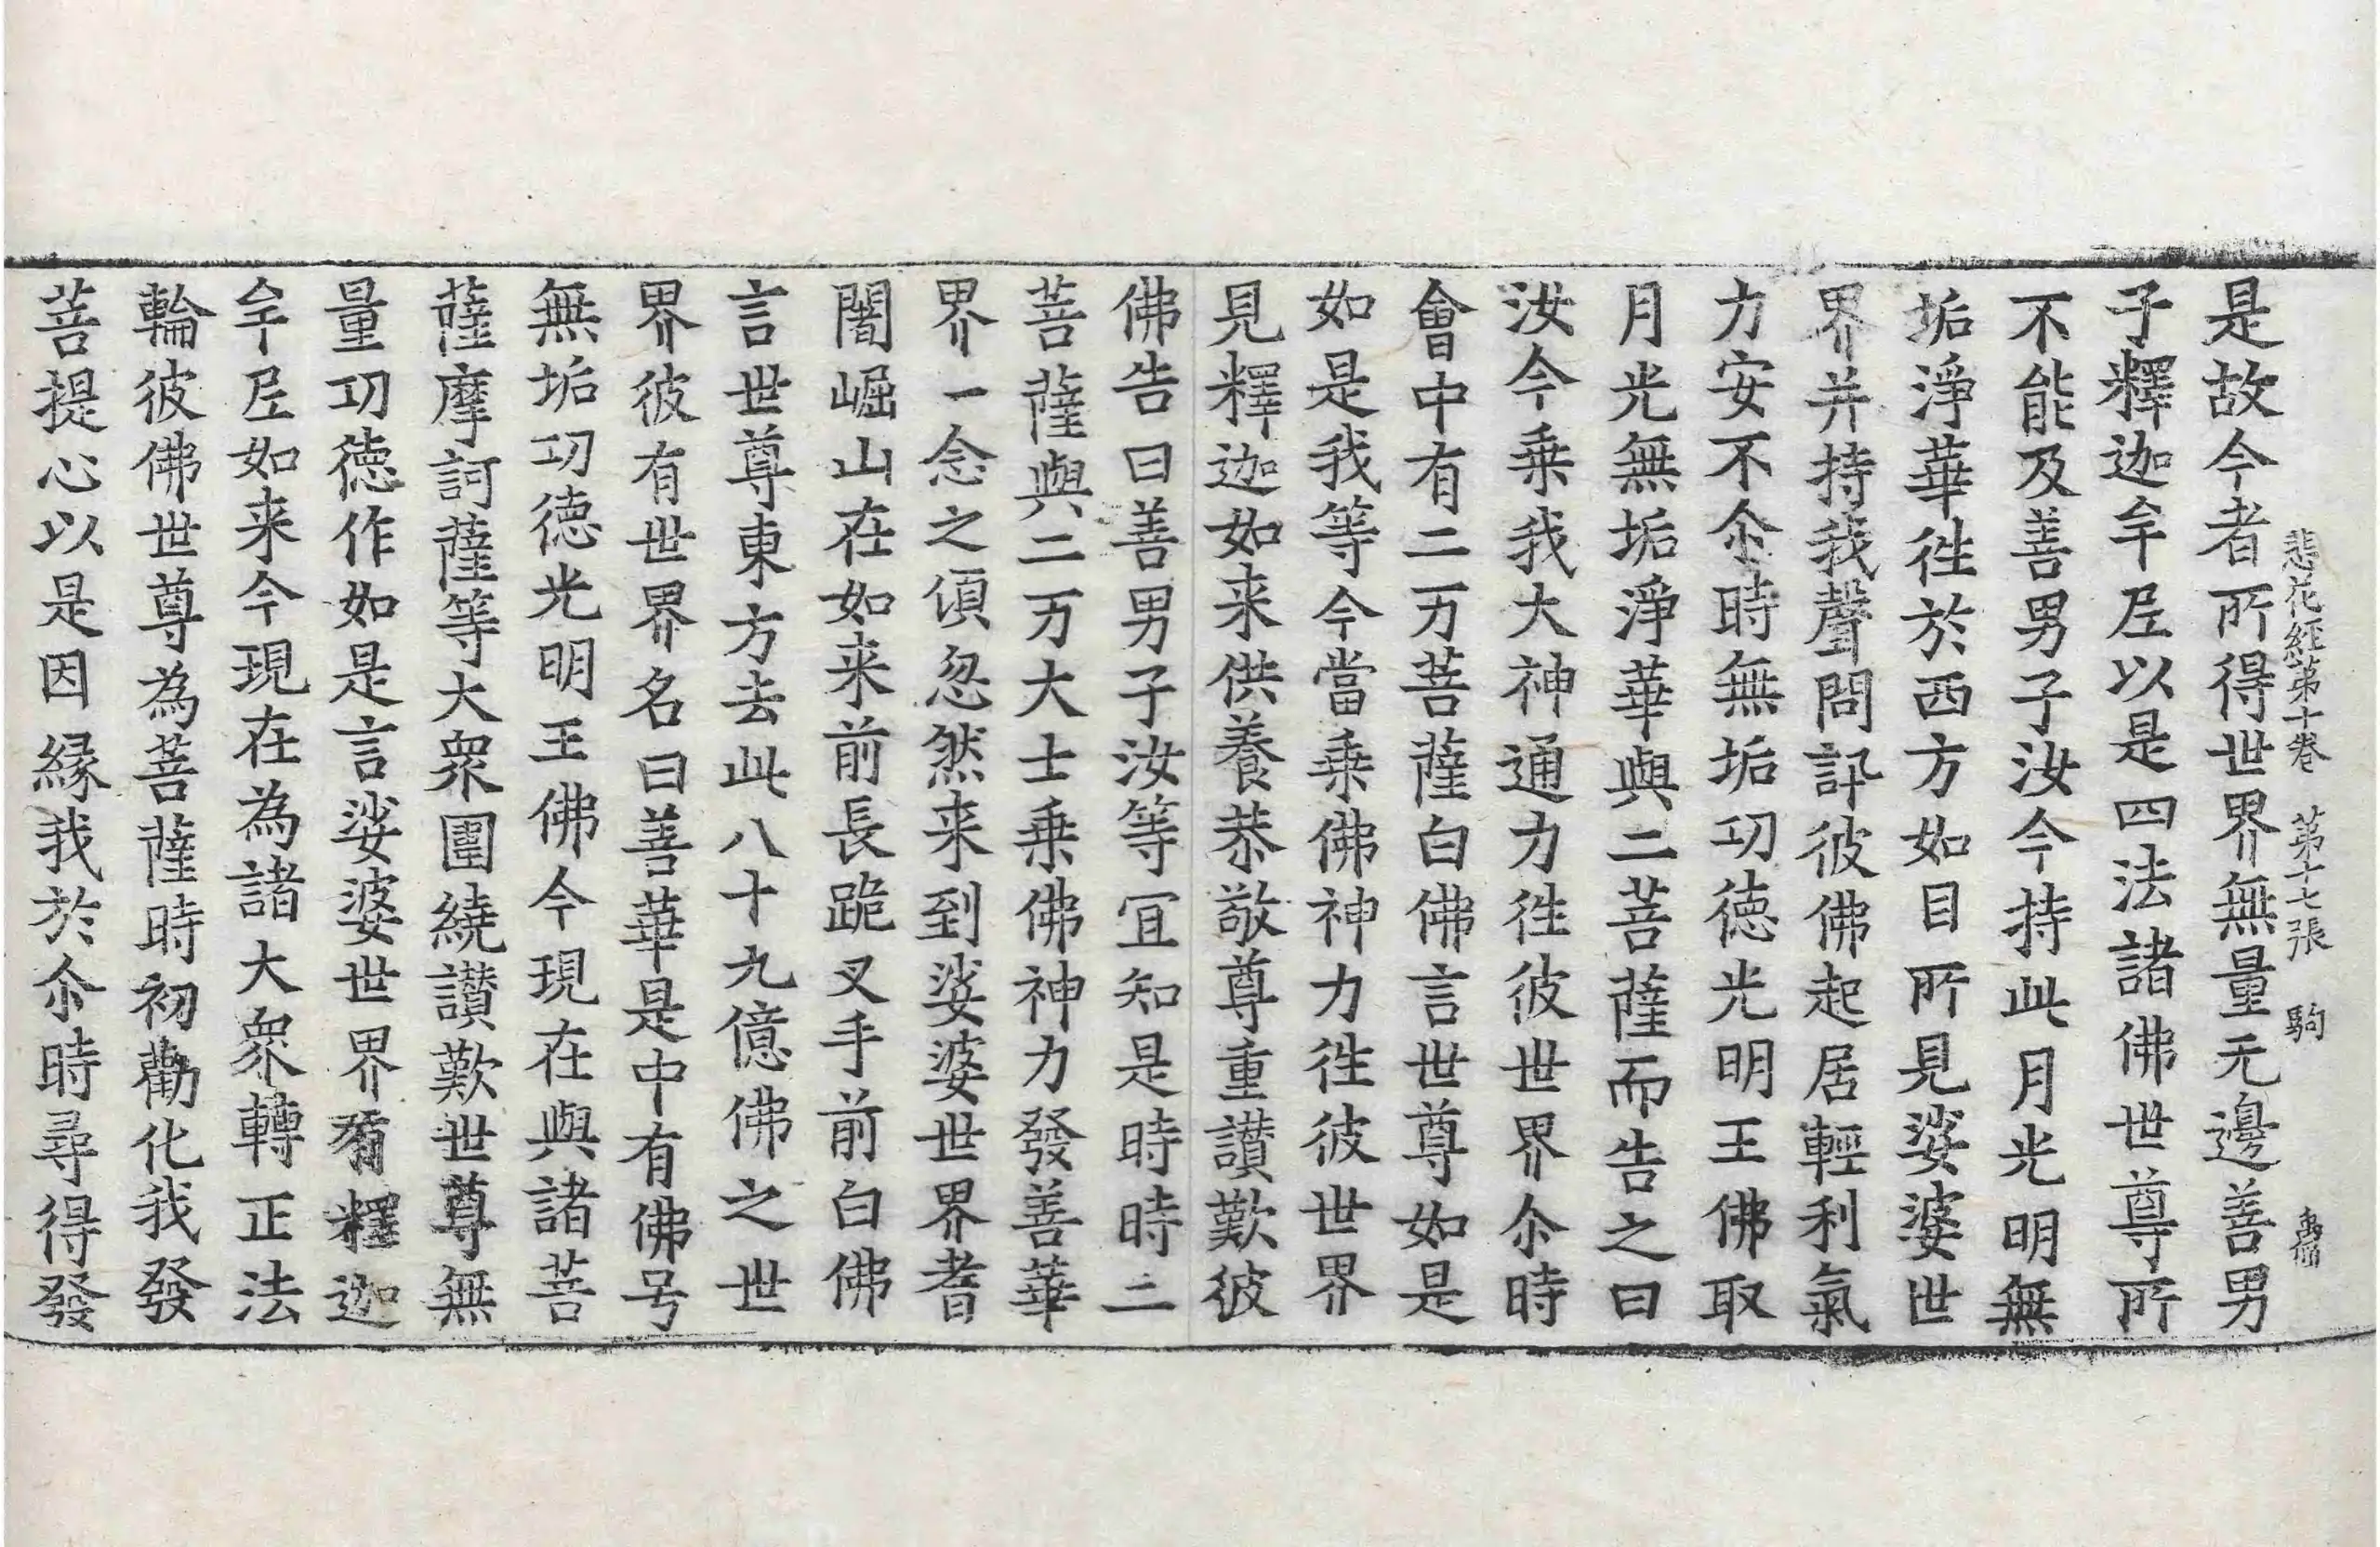 悲花經第十卷 第十七張 駒
是故今者所得世界無量无邊善男
子釋迦牟尼以是四法諸佛世尊所
不能及善男子汝今持此月光明無
垢淨華徃於西方如目所見娑婆世
界并持我聲問訊彼佛起居輕利氣
力安不尒時無垢㓛德光明王佛取
月光無垢淨華與二菩薩而告之曰
汝今乗我大神通力徃彼世界尒時
會中有二万菩薩白佛言世尊如是
如是我等今當乗佛神力徃彼世界
見釋迦如来供養恭敬尊重讃歎彼
佛告曰善男子汝等冝知是時時二
菩薩與二万大士乗佛神力發善華
界一念之頃忽然来到娑婆世界耆
闍崛山在如来前長跪叉手前白佛
言世尊東方去此八十九億佛之世
界彼有世界名曰善華是中有佛号
無垢㓛德光明王佛今現在與諸菩
薩摩訶薩等大衆圍繞讃歎世尊無
量㓛德作如是言娑婆世界有釋迦
牟尼如来今現在為諸大衆轉正法
輪彼佛世尊為菩薩時初勸化我發
菩提心以是因縁我於尒時尋得發